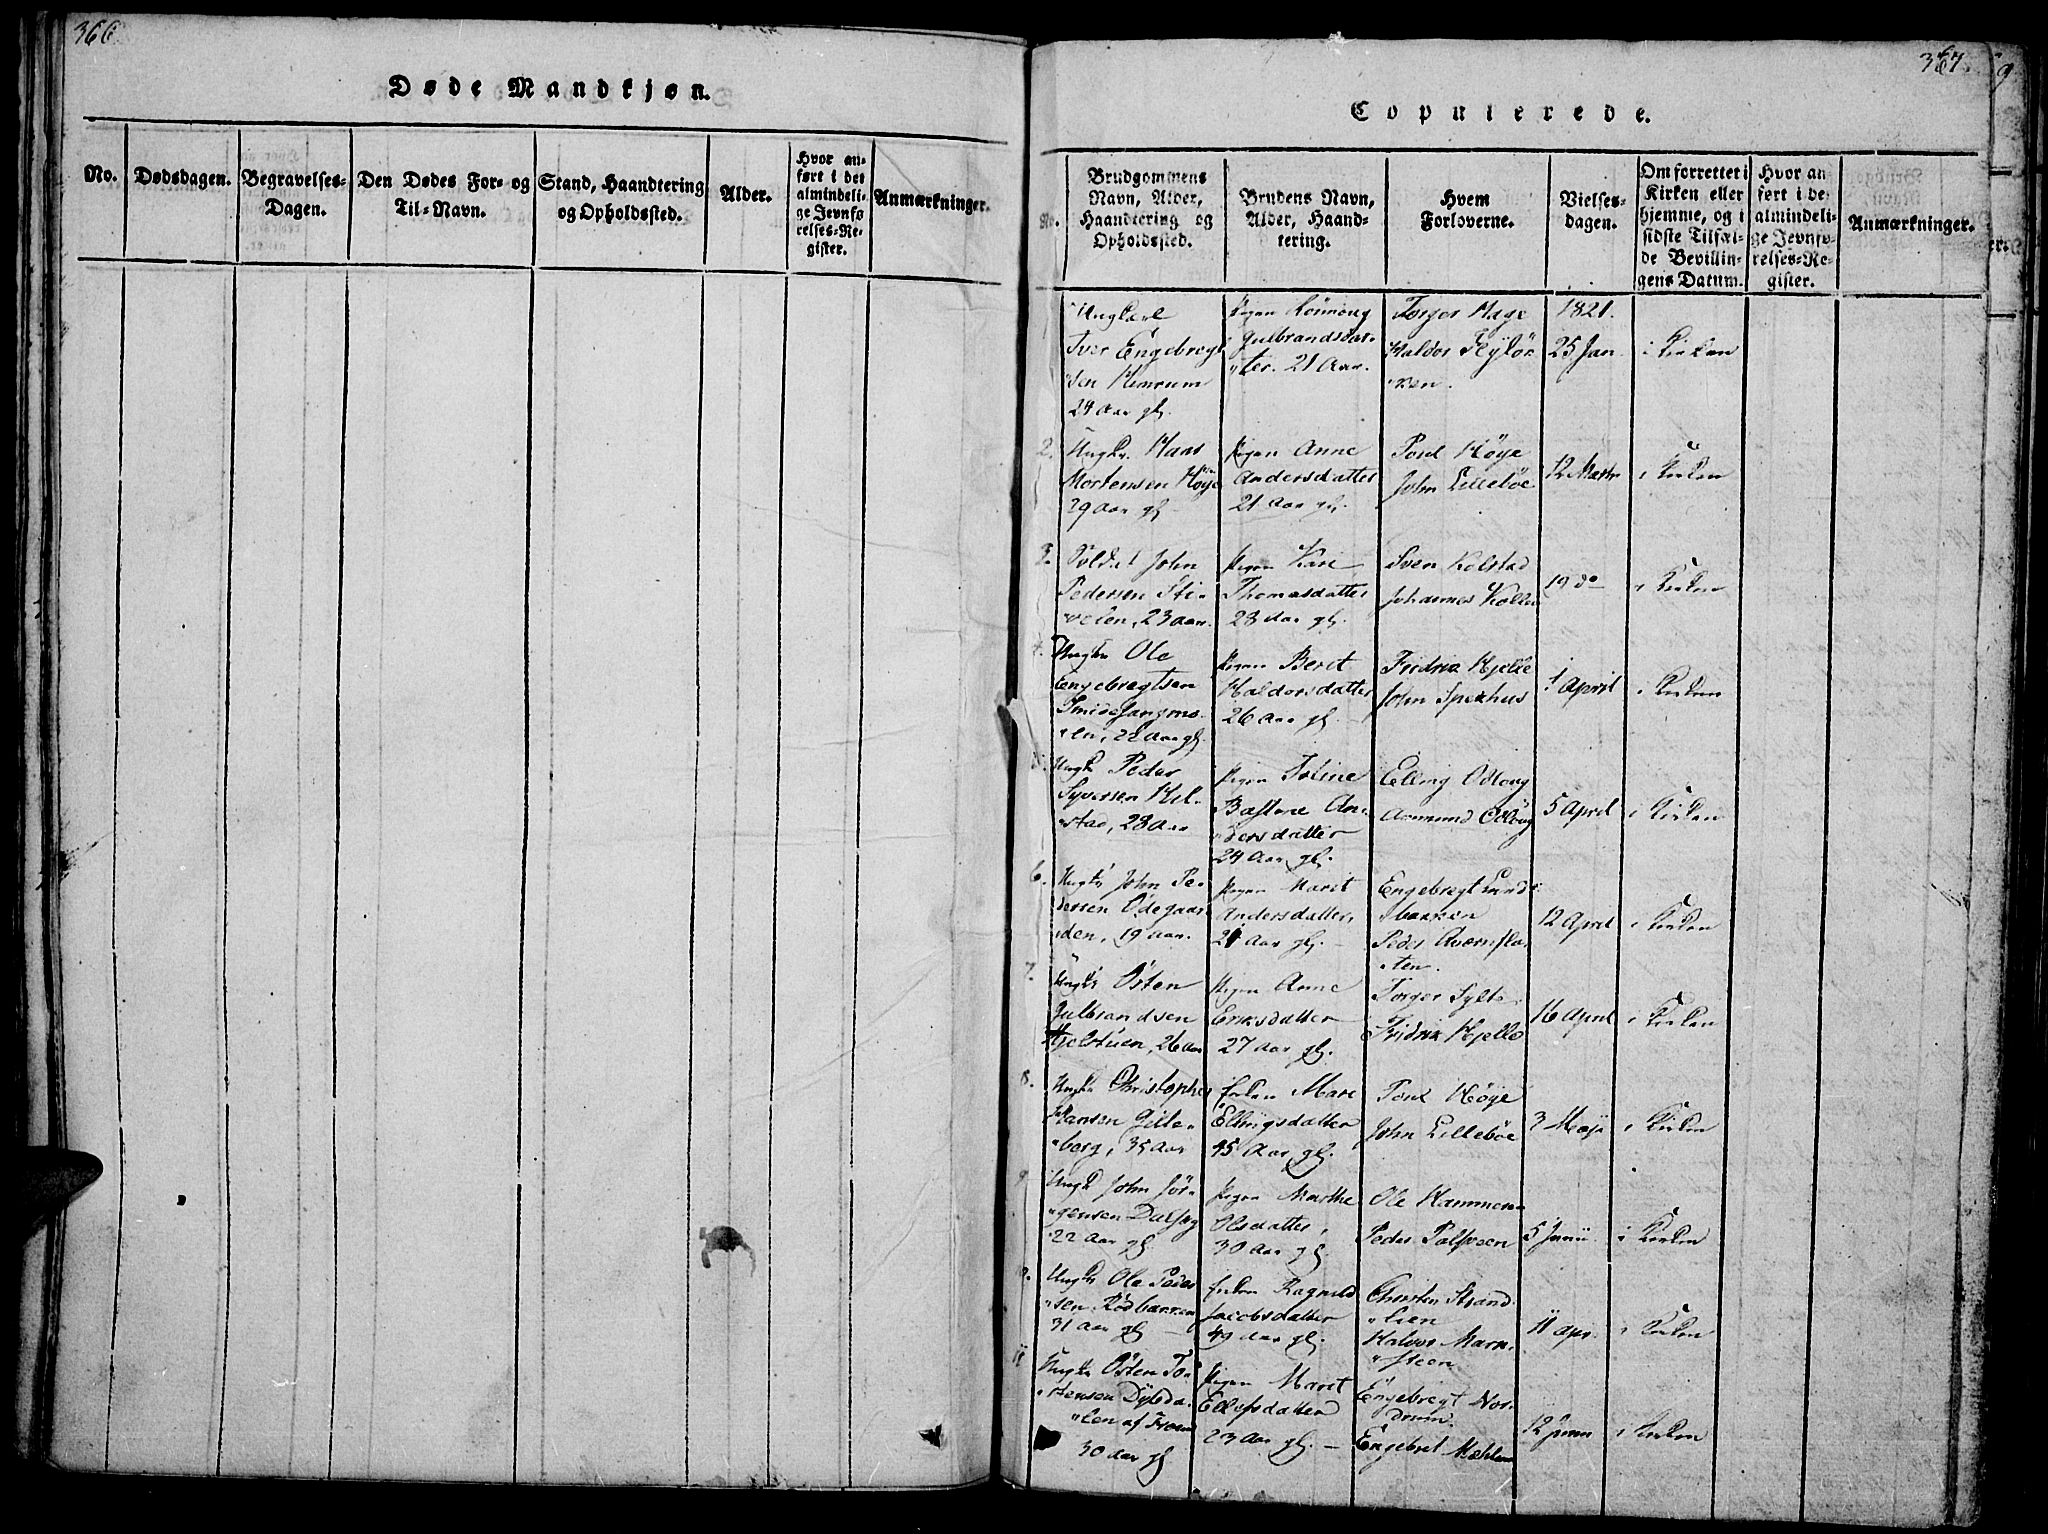 366
Døde Mandkjøn.
No.
Dødsdagen.
Begravelses-
Dagen.
Den Dødes For- og
Til-Navn.
Stand, Haandtering
og Opholdssted.
Alder.
Hvor an-
ført i det
almindeli-
ge Jevnfø
relses-Re-
gister.
Anmærkninger.
367.
Copulerede.
No.
Brudgommens
Navn, Alder,
Haandtering og
Opholdssted.
Brudens Navn,
Alder, Haand-
tering.
Hvem
Forloverne.
Vielses-
dagen.
Om forrettet i
Kirken eller
hjemme, og i
sidste Tilfæl-
de Bevillin-
gens Datum.
Hvor an
ført i de
almindeli-
ge Jevnfø-
relses-Re-
gister.
Anmærkninger.
Ungkarl
Iver Engebregt
sen
24 Aar gl.
Pigen Rönnoug
Gulbrandsdat-
ter. 21 Aar.
Torger Hage
Haldor
1821.
25 Jan.
i Kirken
2.
Ungk. Hans
Mortensen Høye
29 Aar gl
Pigen Anne
Andersdatter
21 Aar gl.
Poul Höye
John Lilleböe
12 Martz
i Kirken
3.
Soldat John
Pedersen Sti-
veien, 23 aar.
Pigen Kari
Thomasdatter
28 Aar gl.
Sven Kolstad
Johannes Kollen
19 do
i Kirken
4.
Ungk. Ole
Engebregtsen
len, 22 Aar gl.
Pigen Beret
Haldorsdatter
26 Aar gl.
Fridrik Hjelle
John
1 April
i Kirken
5.
Ungk. Peder
Syversen Kol-
stad, 28 Aar
Pigen
An-
dersdatter
24 Aar gl.
Elling Odloug
Aamund Odloug
5 April
i Kirken
6.
Ungk. John Pe-
dersen Ödegaar-
den, 19 aar.
Pigen Marit
Andersdatter,
21 Aar gl.
Engebregt Sund-
bakken
Peder
ten.
12 April
i Kirken
7.
Ungk. Östen
Gulbrandsen
Hjelstuen, 26 aar
Pigen Anne
Eriksdatter
27 Aar gl.
Torger Sylte
Fridrik Hjelle
16 April
i Kirken
8.
Ungk. Christopher
Hansen Gille-
berg, 35 Aar
Enken Mari
Ellingsdatter
45 Aar gl.
Poul Höye
John Lilleböe
3 Maji
i Kirken
9
Ungk. John Jör-
gensen Dalseg
22 Aar gl.
Pigen Marthe
Olsdatter,
30 Aar gl.
Ole Hammeren
Peder
5 Junii
i Kirken
Ungk. Ole Peder-
sen Rödbakken
31 Aar gl.
Enken Ragnild
Jacobsdatter
49 Aar gl.
Christen Strand-
lien
Halvor Marn-
steen
11 apr.
i Kirken
11
Ungk. Östen To-
stensen Dybda-
len af Froen
30 Aar gl
Pigen Marit
Ellefsdatter
23 Aar gl.
Engebregt Nor-
drum.
Engebret Mæhlum
12 Junii
i Kirken